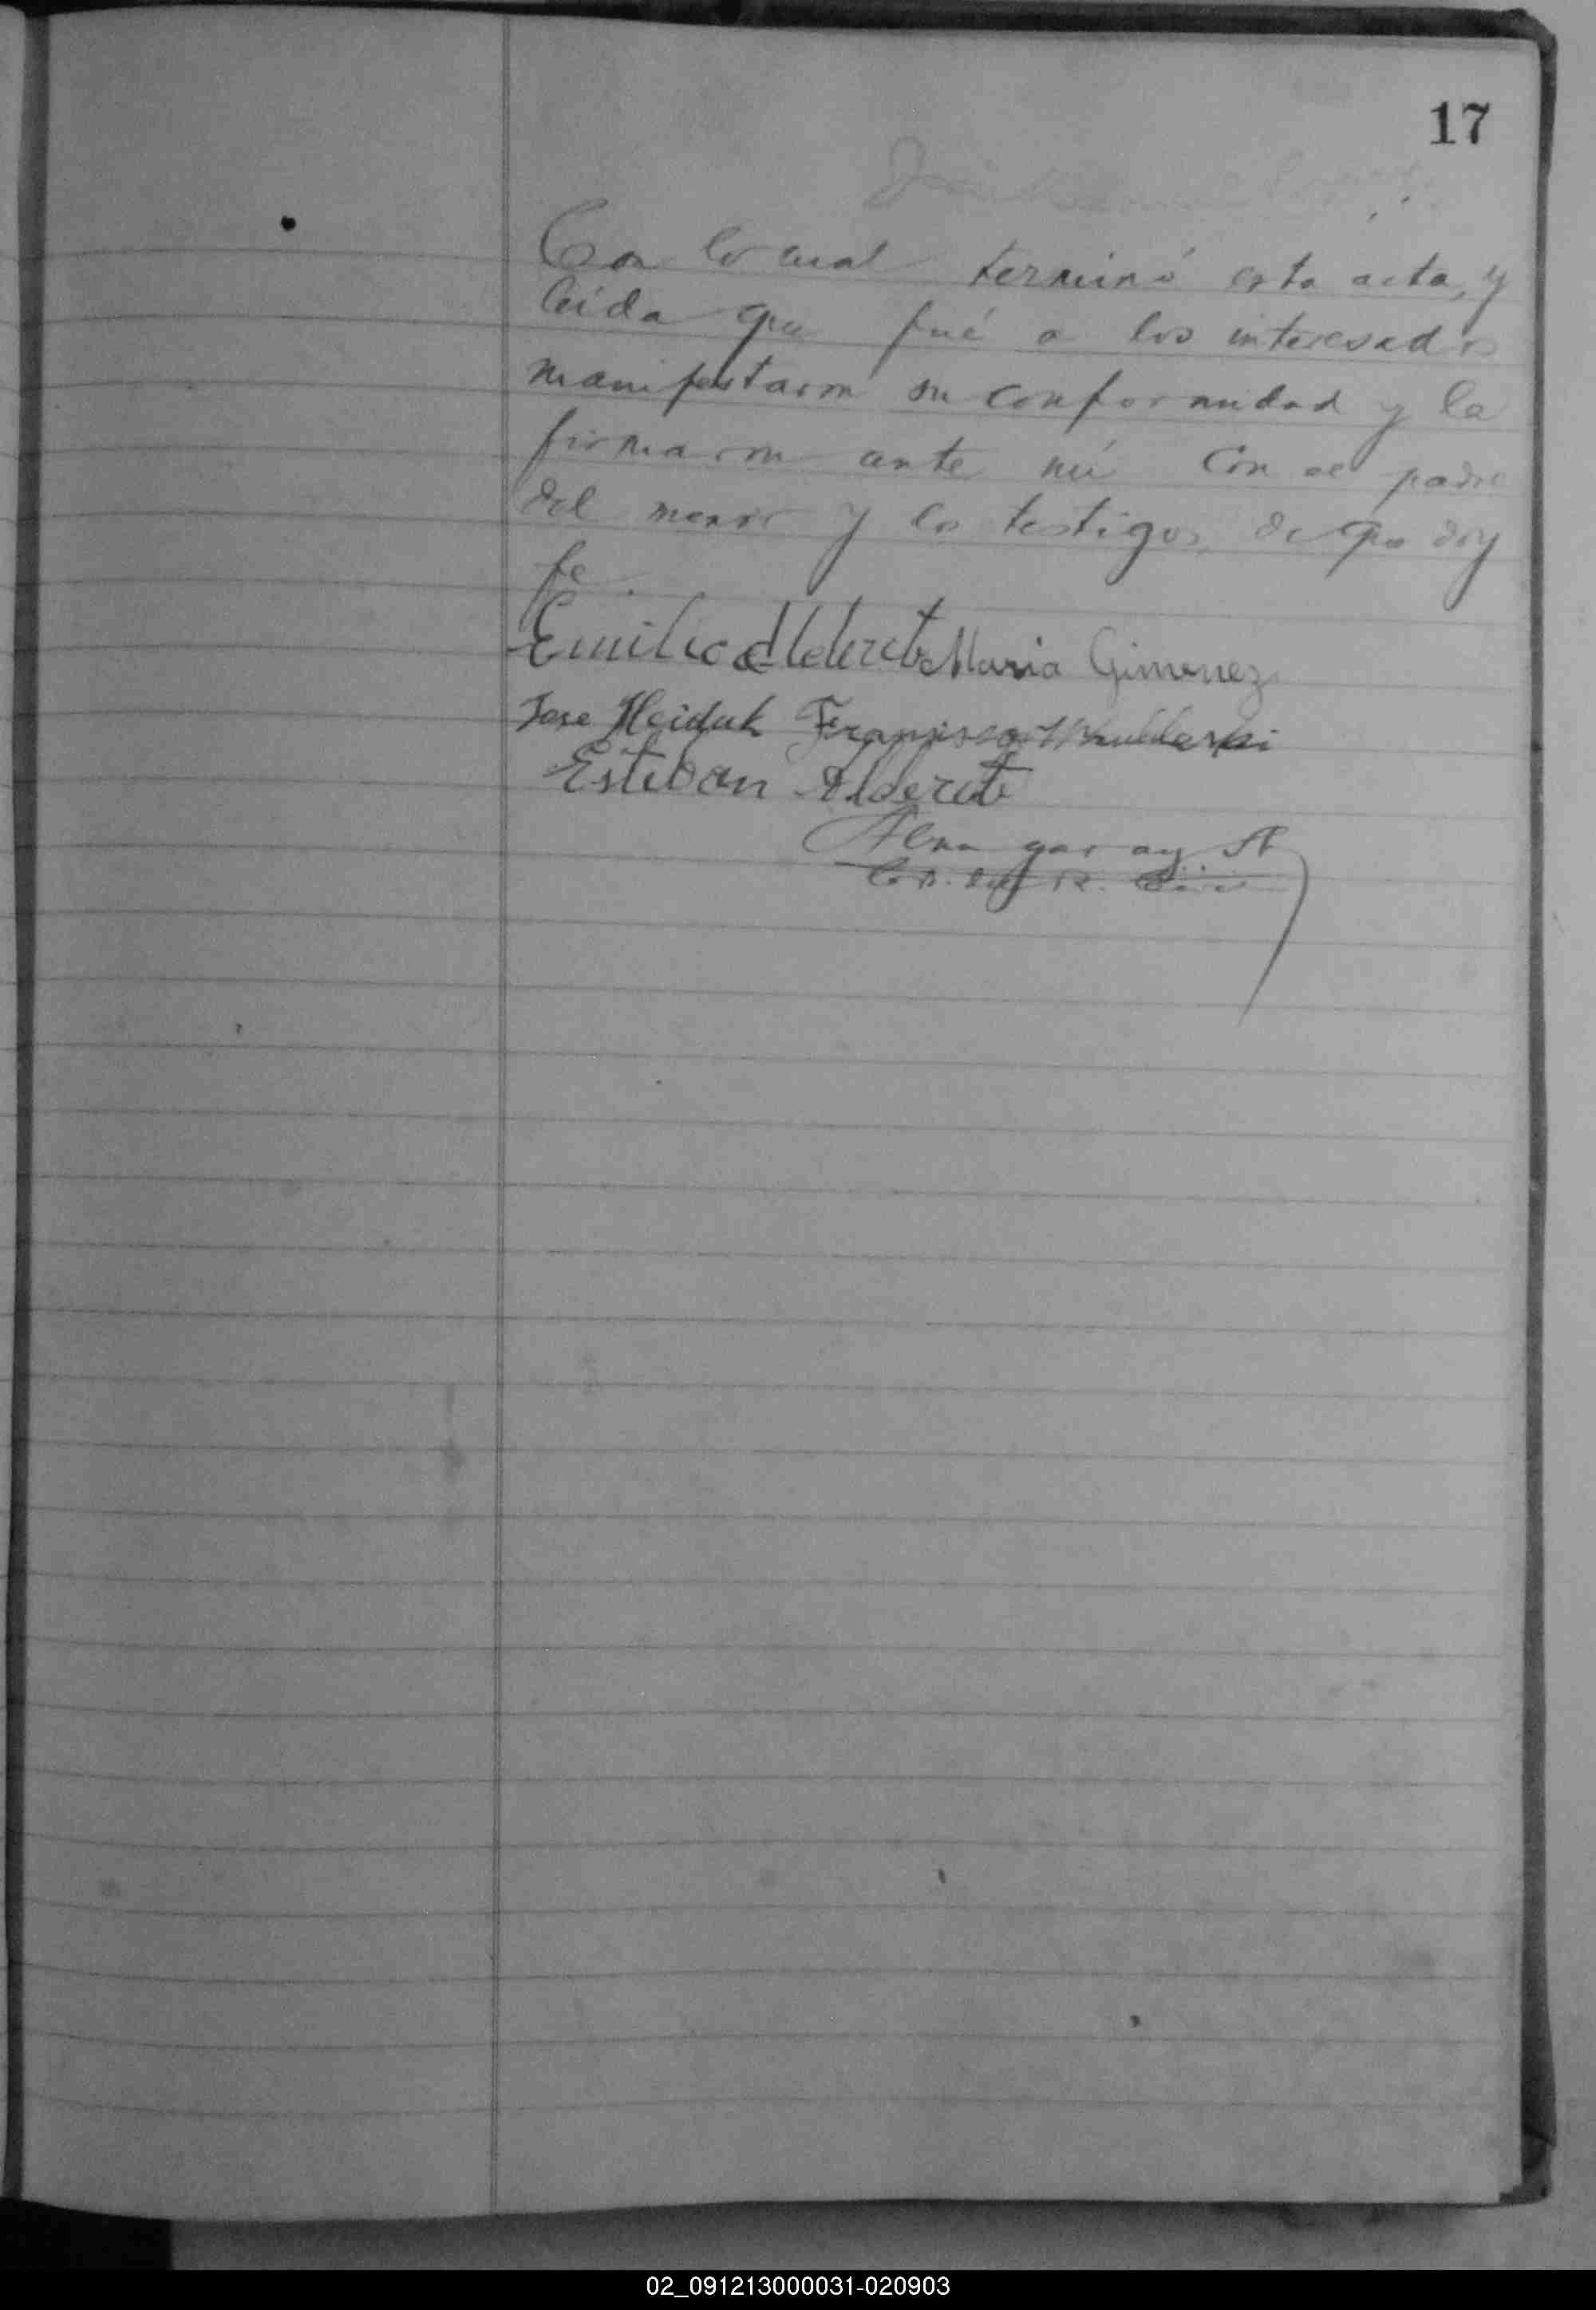 17
Con lo cual terminó esta acta, y
leida que fué a los interesados
manifestaron su conformidad y la
firmaron ante mi con el padre
del menor y los testigos, de que doy
fe.
Emilio Alderete Maria Gimenez
Jose Heiduk Francisco
Esteban Alderete
garay
02_091213000031-020903